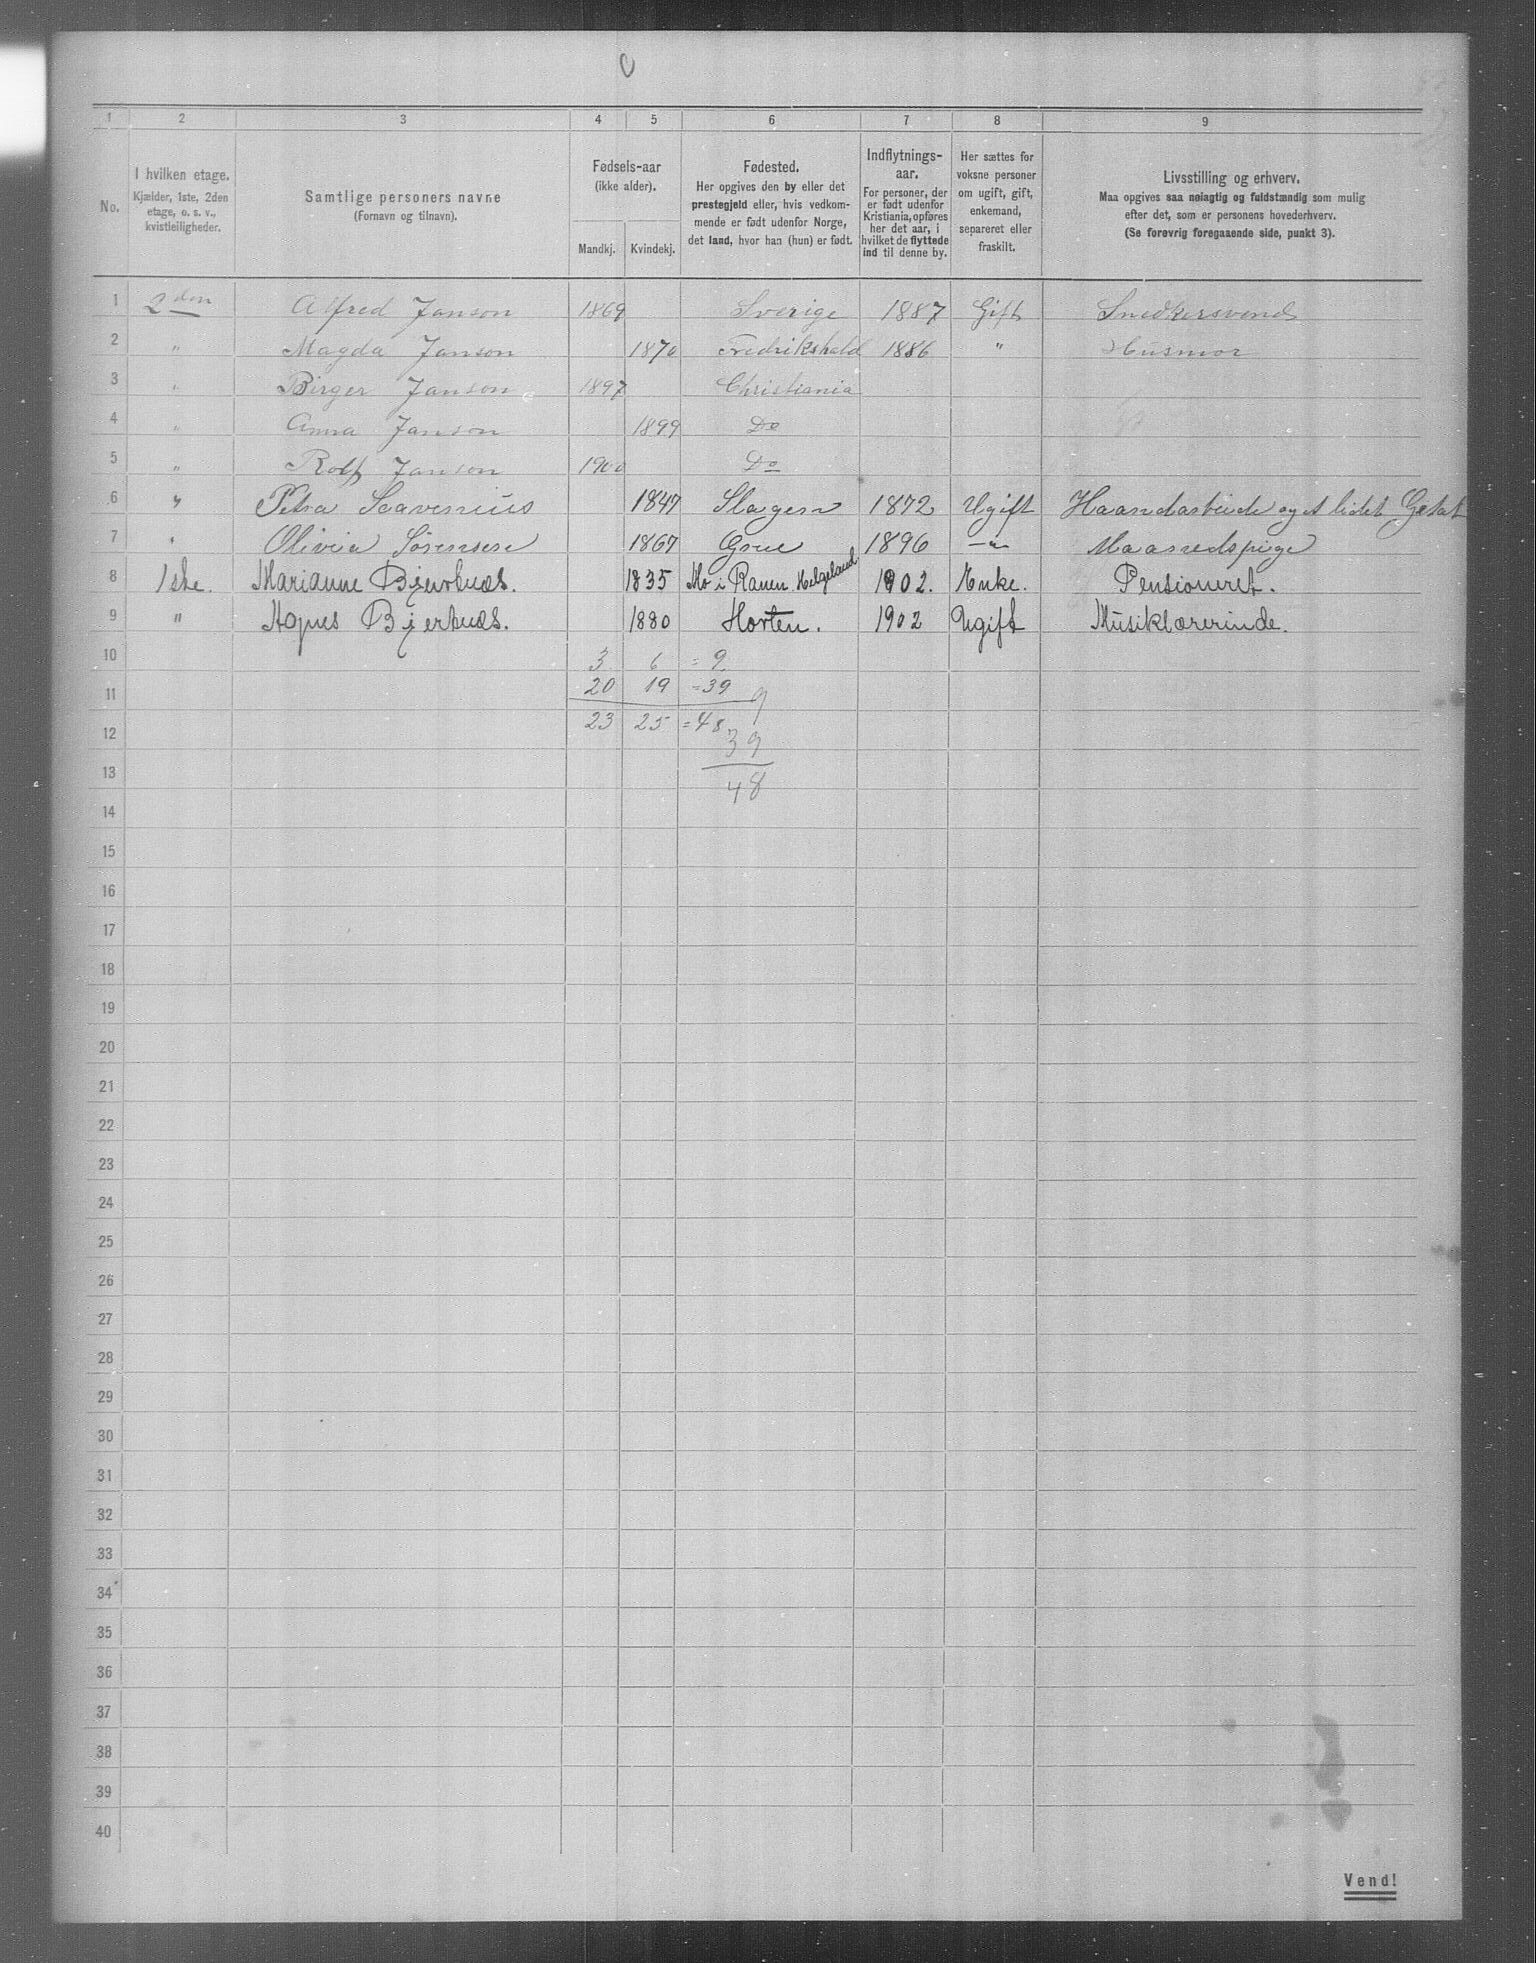 1 2 3 4 5 6 7 8 9
No.
I hvilken etage.
Kjælder, 1ste, 2den
etage, o. s. v.,
kvistleiligheder.
Samtlige personers navne
(Fornavn og tilnavn).
Fødsels-aar
(ikke alder).
Mandkj. Kvindekj.
Fødested.
Her opgives den by eller det
prestegjeld eller, hvis vedkom-
mende er født udenfor Norge,
det land, hvor han (hun) er født.
Indflytnings-
aar.
For personer, der
er født udenfor
Kristiania, opføres
her det aar, i
hvilket de flyttede
ind til denne by.
Her sættes for
voksne personer
om ugift, gift,
enkemand,
separeret eller
fraskilt.
Livsstilling og erhverv.
Maa opgives saa nøiagtig og fuldstændig som mulig
efter det, som er personens hovederhverv.
(Se forøvrig foregaaende side, punkt 3).
1 2den Alfred Janson 1869 Sverige 1887 Gift Snedkersvend
2 " Magda Janson 1870 Fredrikshald 1886 " Husmor
3 " Birger Janson 1897 Christiania
4 " Anna Janson 1899 Do
5 " Rolf Janson 1900 Do
6 " Petra Scavenius 1847 Slagen 1872 Ugift Haandarbeide og et lidet
7 " Olivia Sørensen 1867 Grue 1896 —"— Maanedspige
8 1ste. Marianne Bjerknæs. 1835 Mo i Ranen Helgeland 1902. Enke. Pensioneret.
9 " Agnes Bjerknæs. 1880 Horten. 1902 Ugift Musiklærerinde.
10 3 6 = 9
11 20 19 = 39 9
12 23 25 = 48 39
13 48
14
15
16
17
18
19
20
21
22
23
24
25
26
27
28
29
30
31
32
33
34
35
36
37
38
39
40
Vend!